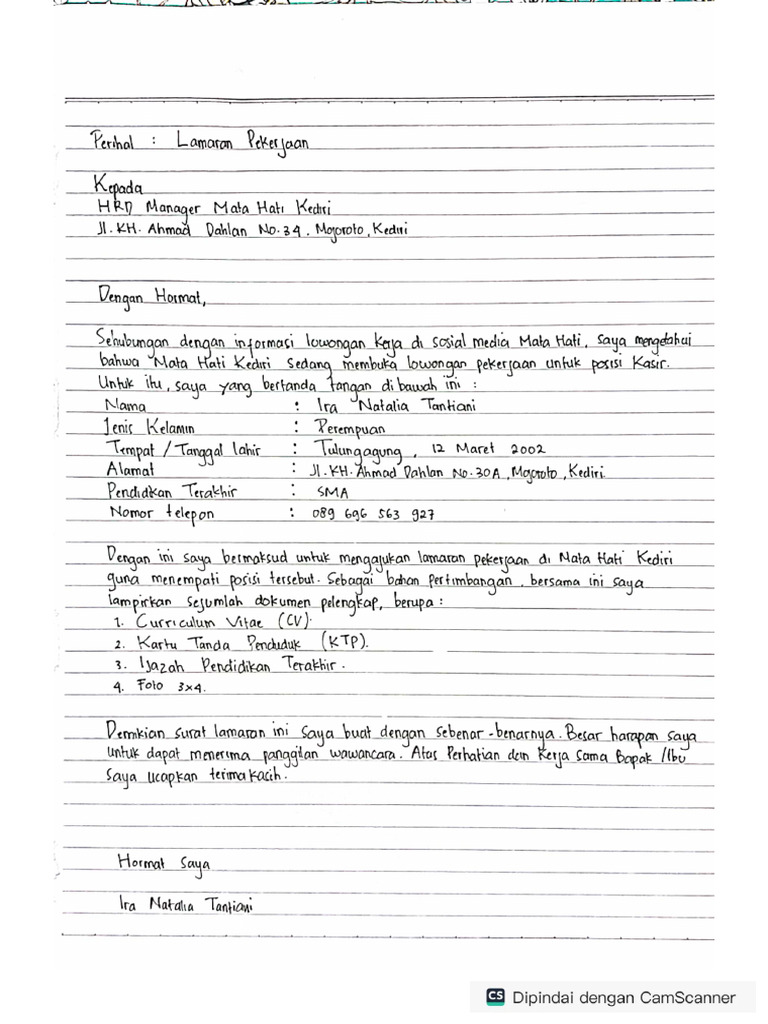 Perihal : Lamaran Pekerjaan
Kepada
HRD Manager Mata Hati Kediri
Jl. KH. Ahmad Dahlan No. 34. Mojoroto, Kediri
Dengan Hormat,
Sehubungan dengan informasi lowongan kerja di sosial media Mata Hati, saya mengetahui
bahwa Mata Hati Kediri sedang membuka lowongan pekerjaan untuk posisi Kasir.
Untuk itu, saya yang bertanda tangan di bawah ini :
Nama : Ira Natalia Tantiani
Jenis Kelamin : Perempuan
Tempat / Tanggal lahir : Tulungagung, 12 Maret 2002
Alamat : Jl. KH. Ahmad Dahlan No. 30A, Mojoroto, Kediri.
Pendidkan Terakhir : SMA
Nomor telepon : 089 696 563 927
Dengan ini saya bermaksud untuk mengajukan lamaran pekerjaan di Mata Hati Kediri
guna menempati posisi tersebut. Sebagai bahan Pertimbangan, bersama ini saya
lampirkan sejumlah dokumen pelengkap, berupa :
1. Curriculum Vitae (CV).
2. Kartu Tanda Penduduk (KTP).
3. Ijazah Pendidikan Terakhir.
4. Foto 3x4.
Demikian surat lamaran ini saya buat dengan sebenar-benarnya. Besar harapan saya
untuk dapat menerima panggilan wawancara. Atas Perhatian dan Kerja Sama Bapak /Ibu
Saya ucapkan terima kasih.
Hormat Saya
Ira Natalia Tantiani
CS Dipindai dengan CamScanner